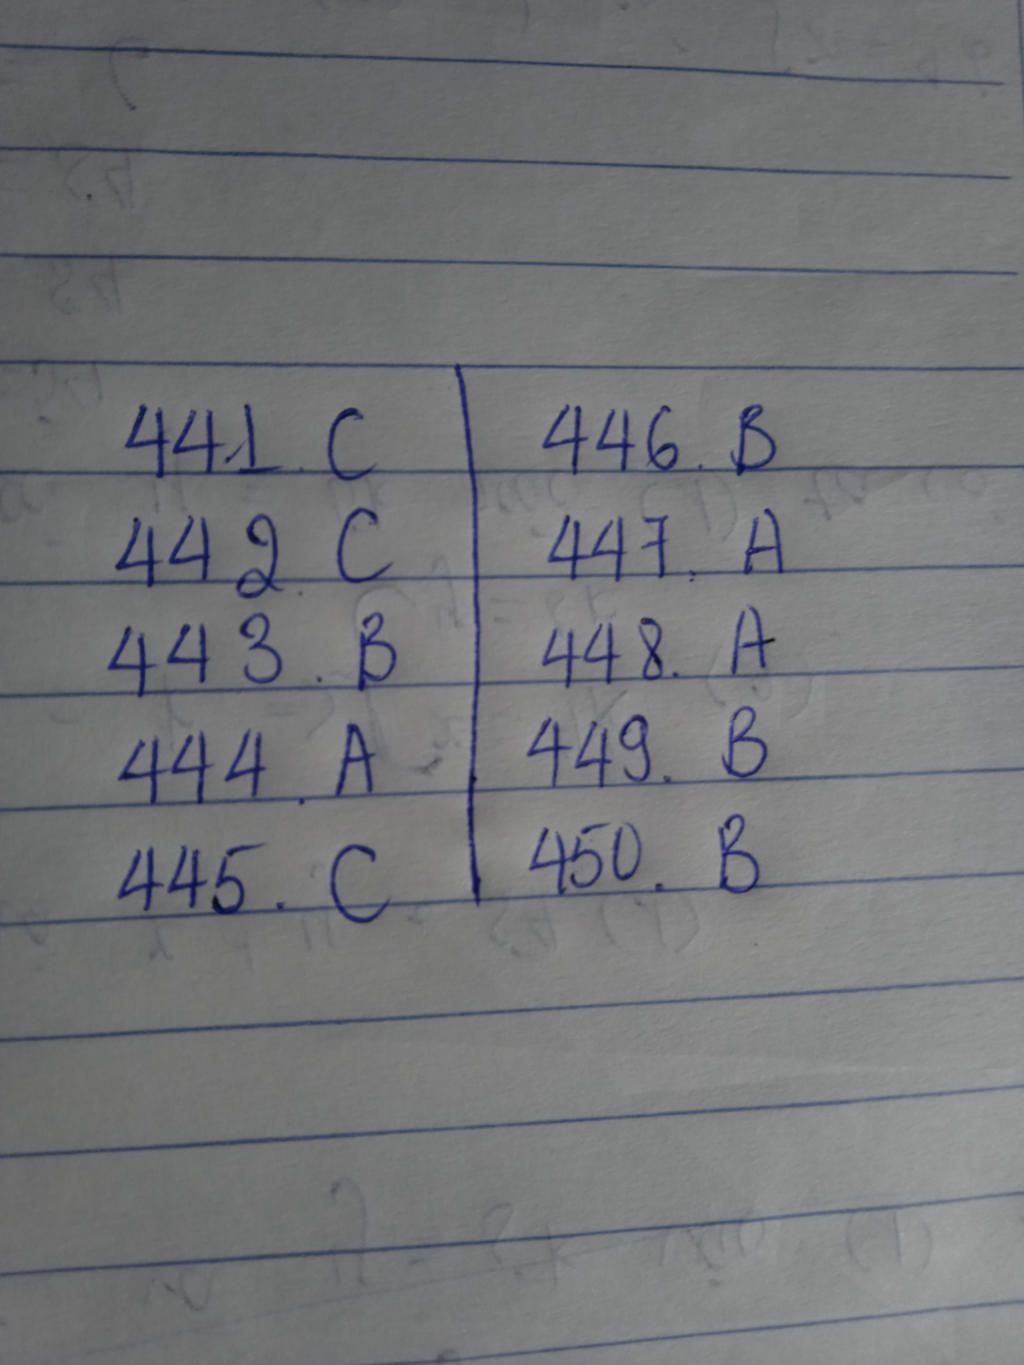 441. C
442. C
443. B
444. A
445. C
446. B
447. A
448. A
449. B
450. B